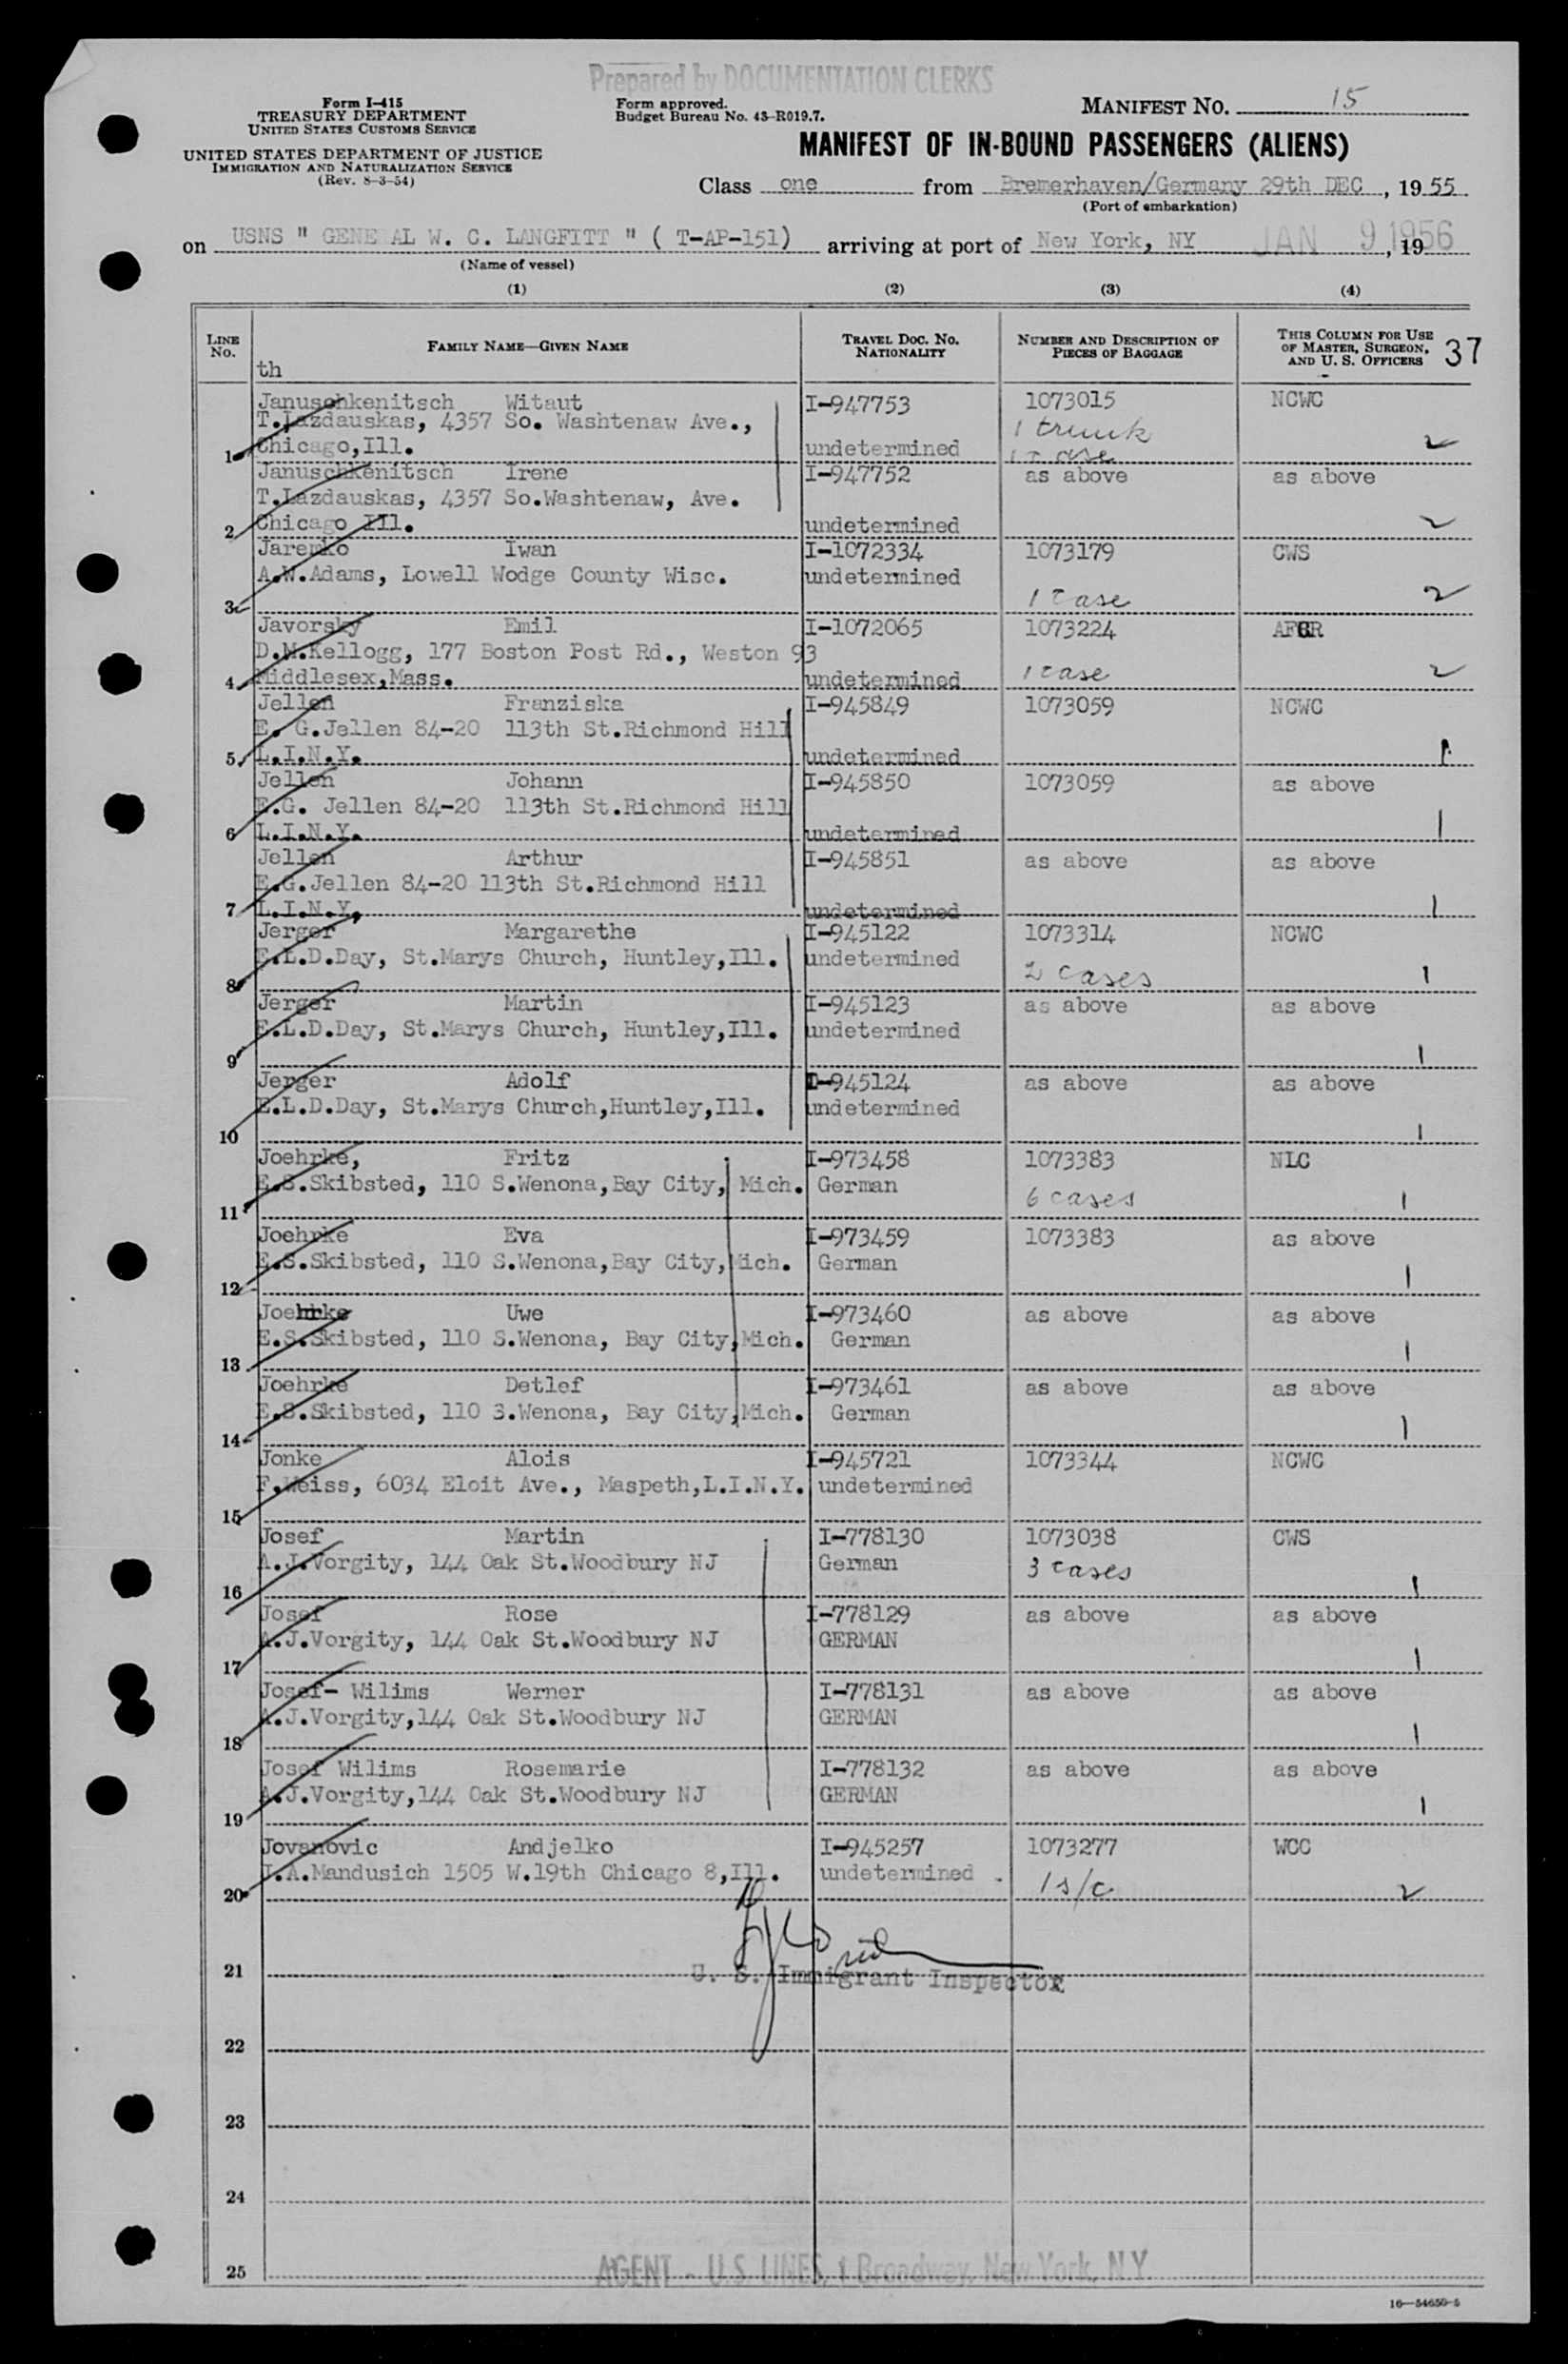 Prepared by DOCUMENTATION CLERKS
Form I-415
TREASURY DEPARTMENT
UNITED STATES CUSTOMS SERVICE
UNITED STATES DEPARTMENT OF JUSTICE
IMMIGRATION AND NATURALIZATION SERVICE
(Rev. 8-3-54)
Form approved.
Budget Bureau No. 43-R019.7.
MANIFEST NO. 15
MANIFEST OF IN-BOUND PASSENGERS (ALIENS)
Class one from Bremerhaven/Germany 29th DEC, 1955
(Port of embarkation)
on USNS " GENERAL W. C. LANGFITT " ( T-AP-151) arriving at port of New York, NY JAN 9 1956, 19
(Name of vessel)
(1) (2) (3) (4)
LINE NO. FAMILY NAME—GIVEN NAME TRAVEL DOC. NO. NATIONALITY NUMBER AND DESCRIPTION OF PIECES OF BAGGAGE THIS COLUMN FOR USE OF MASTER, SURGEON, AND U. S. OFFICERS 37
th
Januschkenitsch Witaut I-947753 1073015 NCWC
T.Lazdauskas, 4357 So. Washtenaw Ave., 1 trunk
1 Chicago,Ill. undetermined 1 case 2
Januschkenitsch Irene I-947752 as above as above
T.Lazdauskas, 4357 So.Washtenaw, Ave.
2 Chicago Ill. undetermined 2
Jarenko Iwan I-1072334 1073179 CWS
A.W.Adams, Lowell Wodge County Wisc. undetermined
3 1 case 2
Javorsky Emil I-1072065 1073224 AFCR
D.M.Kellogg, 177 Boston Post Rd., Weston 93
4 Middlesex,Mass. undetermined 1 case 2
Jellen Franziska I-945849 1073059 NCWC
E. G.Jellen 84-20 113th St.Richmond Hill
5 L.I.N.Y. undetermined 1
Jellen Johann I-945850 1073059 as above
E.G. Jellen 84-20 113th St.Richmond Hill
6 L.I.N.Y. undetermined 1
Jellen Arthur I-945851 as above as above
E.G.Jellen 84-20 113th St.Richmond Hill
7 L.I.N.Y. undetermined 1
Jerger Margarethe I-945122 1073314 NCWC
E.L.D.Day, St.Marys Church, Huntley,Ill. undetermined
8 2 cases 1
Jerger Martin I-945123 as above as above
E.L.D.Day, St.Marys Church, Huntley,Ill. undetermined
9 1
Jerger Adolf I-945124 as above as above
E.L.D.Day, St.Marys Church,Huntley,Ill. undetermined
10 1
Joehrke, Fritz I-973458 1073383 NLC
E.S.Skibsted, 110 S.Wenona,Bay City, Mich. German 6 cases
11 1
Joehrke Eva I-973459 1073383 as above
E.S.Skibsted, 110 S.Wenona,Bay City,Mich. German
12 1
Joehrke Uwe I-973460 as above as above
E.S.Skibsted, 110 S.Wenona, Bay City,Mich. German
13 1
Joehrke Detlef I-973461 as above as above
E.S.Skibsted, 110 S.Wenona, Bay City,Mich. German
14 1
Jonke Alois I-945721 1073344 NCWC
F.Weiss, 6034 Eloit Ave., Maspeth,L.I.N.Y. undetermined
15
Josef Martin I-778130 1073038 CWS
A.J.Vorgity, 144 Oak St.Woodbury NJ German 3 cases
16 1
Josef Rose I-778129 as above as above
A.J.Vorgity, 144 Oak St.Woodbury NJ GERMAN
17 1
Josef- Wilims Werner I-778131 as above as above
A.J.Vorgity,144 Oak St.Woodbury NJ GERMAN
18 1
Josef Wilims Rosemarie I-778132 as above as above
A.J.Vorgity,144 Oak St.Woodbury NJ GERMAN
19 1
Jovanovic Andjelko I-945257 1073277 WCC
I.A.Mandusich 1505 W.19th Chicago 8,Ill. undetermined
20 1 s/c 2
21 U. S. Immigrant Inspector
22
23
24
25 AGENT - U.S. LINES, 1 Broadway, New York, N.Y.
16—54650-5